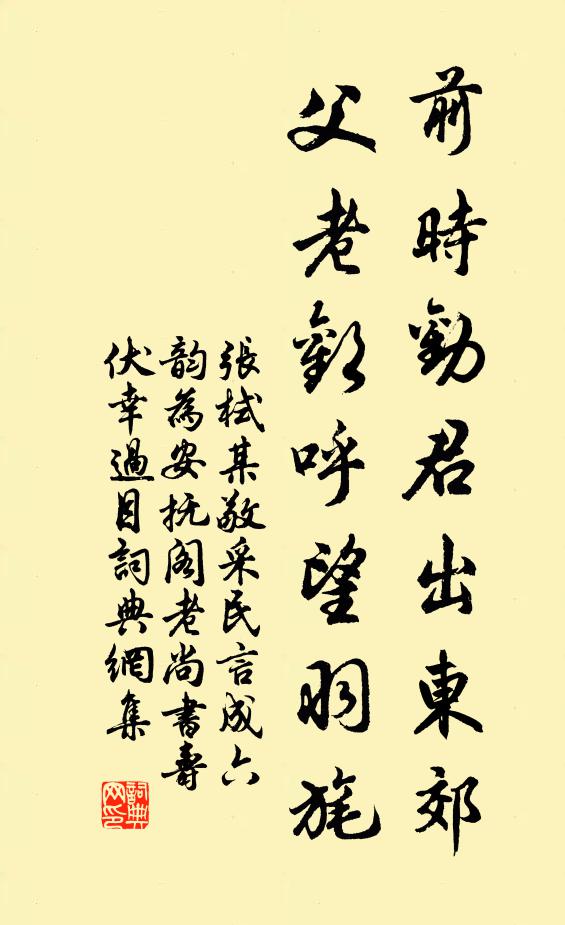 前時勸君出東郊
父老歡呼望羽旄
張栻某敬采民言成六
韵為安抚阁老尚書壽
伏幸過目詞典網集
詞典
网印